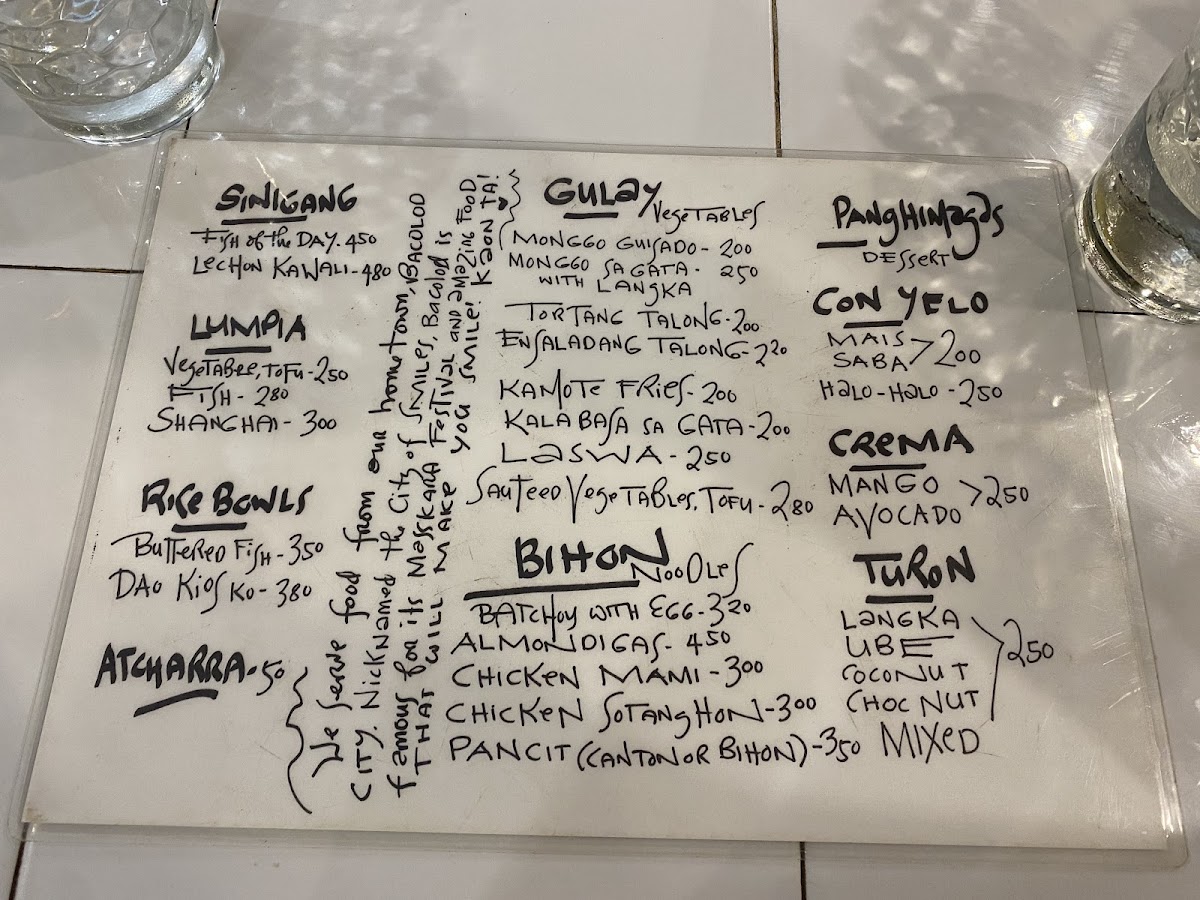 SINIGANG
FISH of the DAY. 450
LECHON KAWALI - 480
LUMPIA
VegeTABLE, TOFU - 250
FISH - 280
SHANGHAI - 300
RICE BOWLS
BUTTERED FISH - 350
DAO KIOSKO - 380
ATCHARRA - 50
We serve food from our hometown, BACOLOD
CITY. NICKNAMED the CITY of SMILES, Bacolod is
famous for its MASSKARA FESTIVAL and amazing FOOD
THAT WILL MAKE YOU SMILE! KAON TA!
GULAY
VegeTABLES
MONGGO GUISADO - 200
MONGGO SA GATA - 250
WITH LANGKA
TORTANG TALONG - 200
ENSALADANG TALONG - 220
KAMOTE FRIES - 200
KALABASA SA GATA - 200
LASWA - 250
SAUTEED VEGETABLES, TOFU - 280
BIHON
NOODLES
BATCHOY WITH EGG - 320
ALMONDIGAS - 450
CHICKEN MAMI - 300
CHICKEN SOTANGHON - 300
PANCIT (CANTON OR BIHON) - 350
PANGHIMAGAS
DESSERT
CON YELO
MAIS
SABA > 200
HALO-HALO - 250
CREMA
MANGO
AVOCADO > 250
TURON
LANGKA
UBE
COCONUT 250
CHOC NUT
MIXED